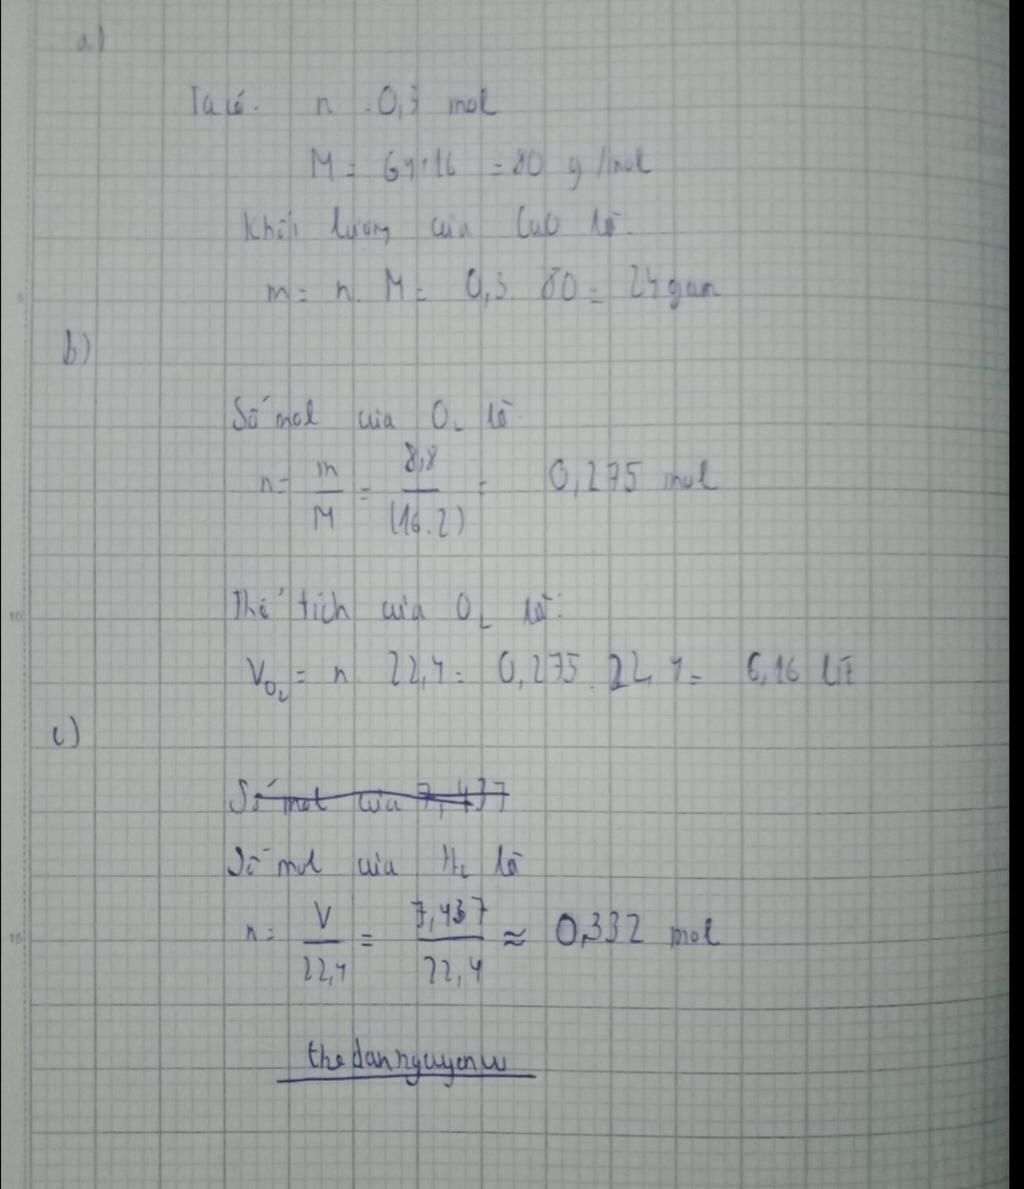 a)
Ta có: n = 0,3 mol
M = 64+16 = 80 g/mol
Khối lượng của CuO là:
m = n. M = 0,3 . 80 = 24 gam
b)
Số mol của O₂ là
n = m/M = 8,8/(16.2) = 0,275 mol
Thể tích của O₂ là:
V_O₂ = n . 22,4 = 0,275 . 22,4 = 6,16 lít
c)
Số mol của 7,437
Số mol của H₂ là
n = V/22,4 = 7,437/22,4 ≈ 0,332 mol
thedannguyenw
5
10
15